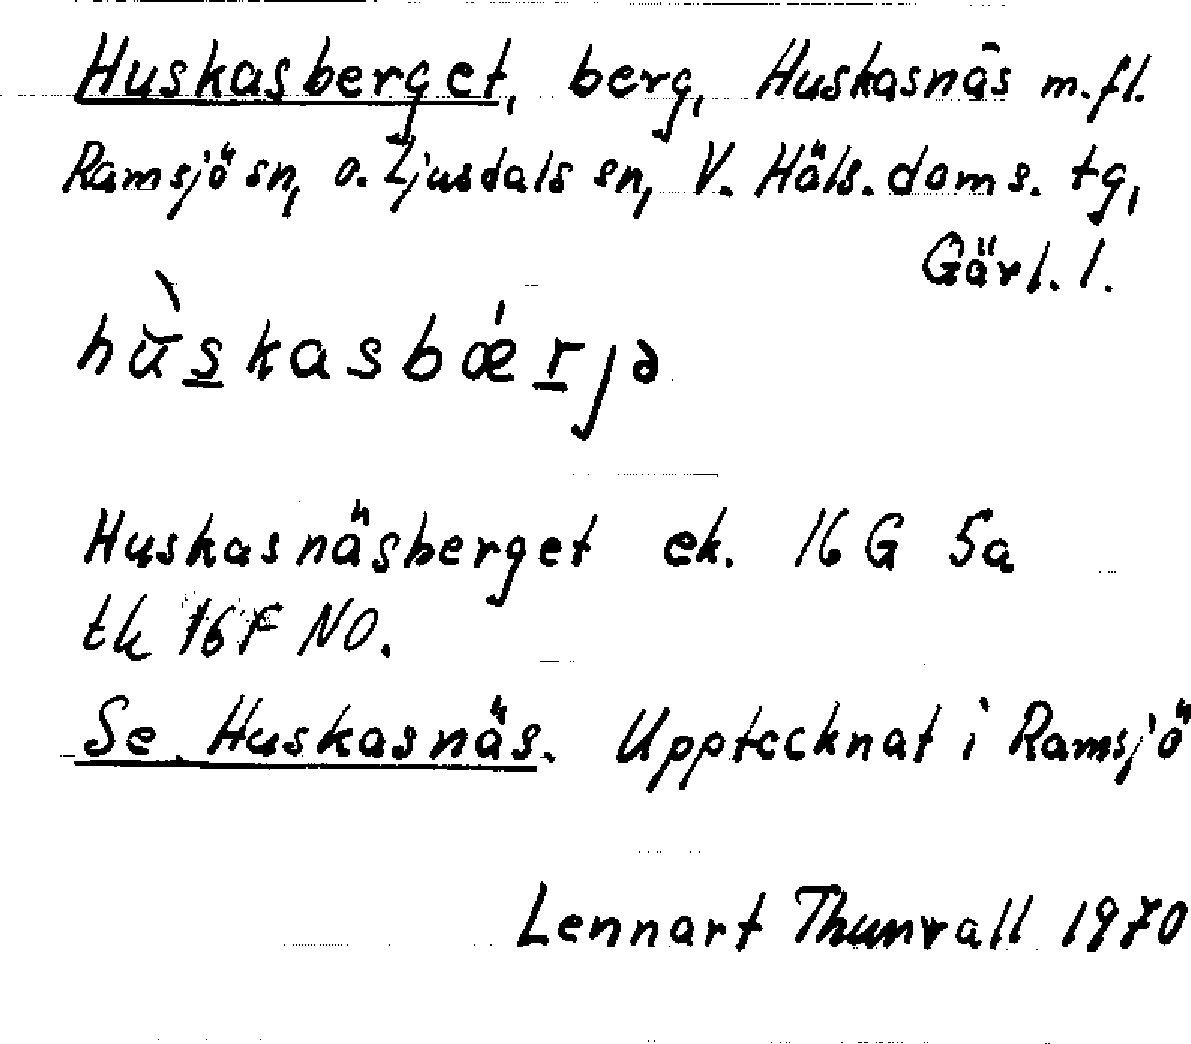 Huskasberget, berg, Huskasnäs m.fl.
Ramsjö sn, o. Ljusdals sn, V. Häls. doms. tg,
Gävl. l.
hùskasbǽrjə
Huskasnäsberget ek. 16 G 5a
tk 16F NO.
Se Huskasnäs. Upptecknat i Ramsjö
Lennart Thunvall 1970